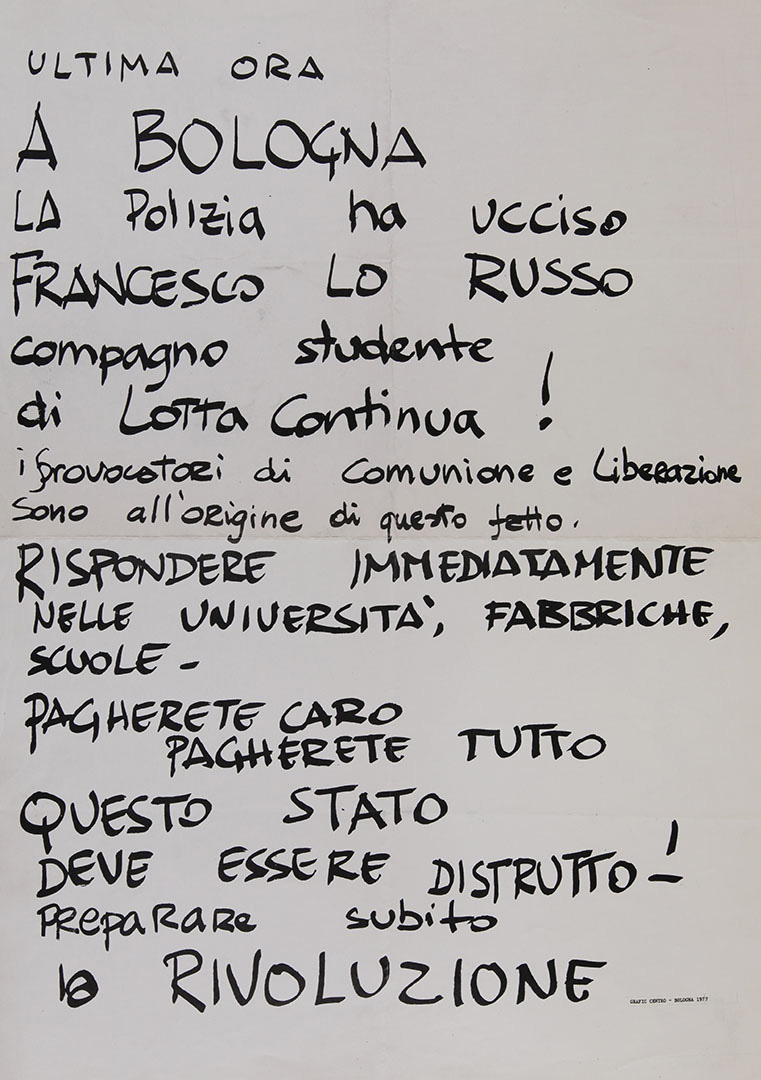 ULTIMA ORA
A BOLOGNA
LA Polizia ha ucciso
FRANCESCO LO RUSSO
compagno studente
di Lotta Continua !
i provocatori di comunione e Liberazione
sono all'origine di questo fatto.
RISPONDERE IMMEDIATAMENTE
NELLE UNIVERSITA', FABBRICHE,
SCUOLE -
PAGHERETE CARO
PAGHERETE TUTTO
QUESTO STATO
DEVE ESSERE DISTRUTTO - !
PREPARARE subito
la RIVOLUZIONE
GRAFIC CENTRO - BOLOGNA 1977